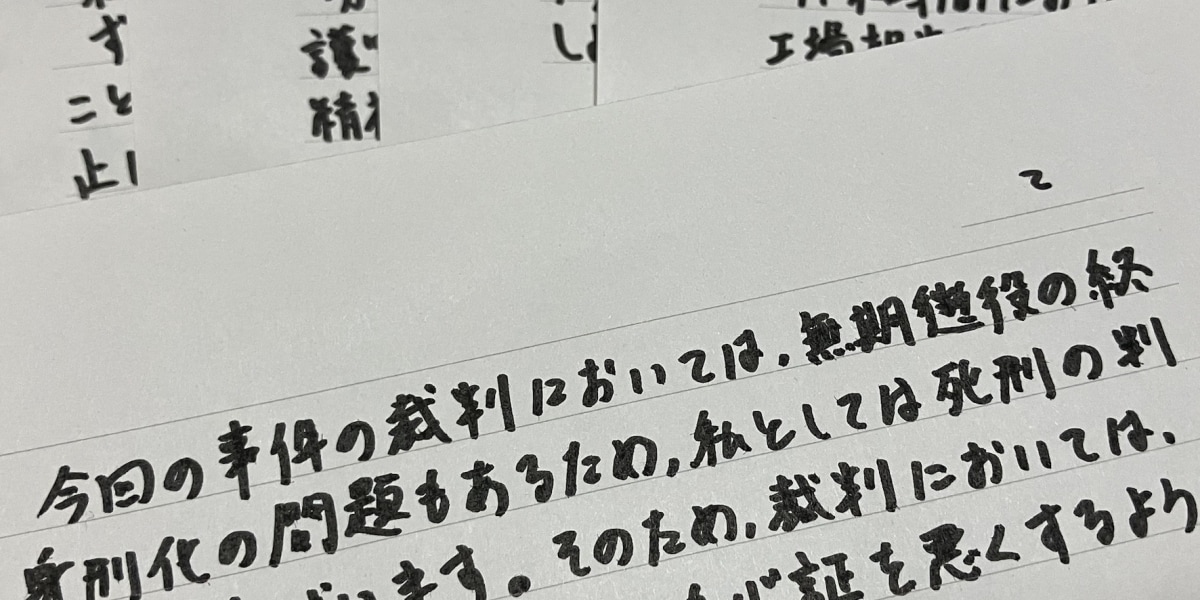 ず
こと
止
護
精
し
工場担当
2
今回の事件の裁判においては、無期懲役の終
身刑化の問題もあるため、私としては死刑の判
います。そのため、裁判においては、
証を悪くするより